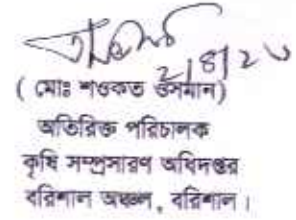 2/8/20
( মোঃ শওকত ওসমান)
অতিরিক্ত পরিচালক
কৃষি সম্প্রসারণ অধিদপ্তর
বরিশাল অঞ্চল, বরিশাল।